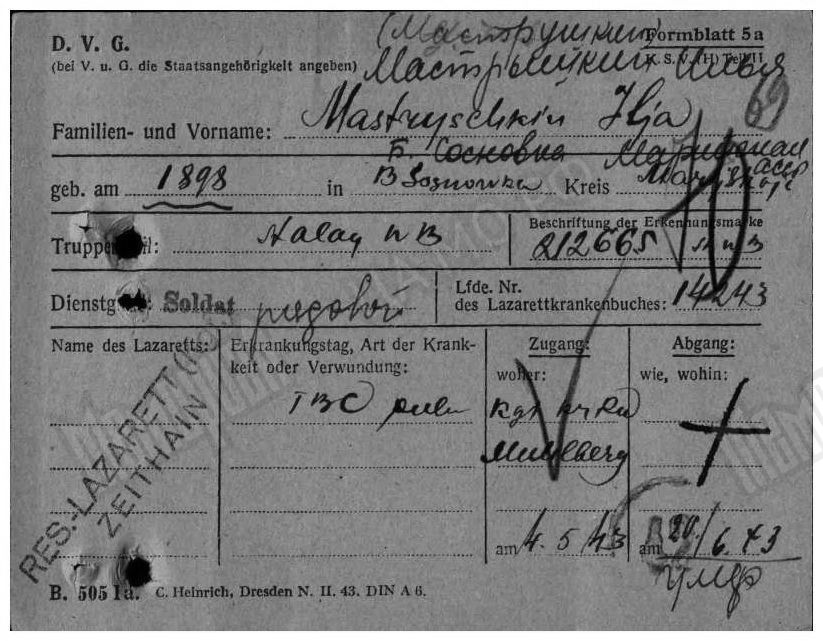 (Маструшкин)
D. V. G.
Formblatt 5a
(bei V. u. G. die Staatsangehörigkeit angeben)
K. S. V. (H) Teil II
Мастрышкин Илья
69
Familien- und Vorname: Mastryschkin Ilja
Б. Сосновка
geb. am 1898 in B Sosnowka Kreis
Truppenteil: Stalag IV B
Beschriftung der Erkennungsmarke
212665 St IV B
Dienstgrad: Soldat рядовой
Lfde. Nr.
des Lazarettkrankenbuches: 14243
Name des Lazaretts:
Erkrankungstag, Art der Krank-
keit oder Verwundung:
Zugang:
woher:
Abgang:
wie, wohin:
TBC
Kgf
Muhlberg
RES.-LAZARETT
ZEITHAIN
am 4. 5 / 43
am 20/6 43
умер
B. 505 Ia. C. Heinrich, Dresden N. II. 43. DIN A 6.